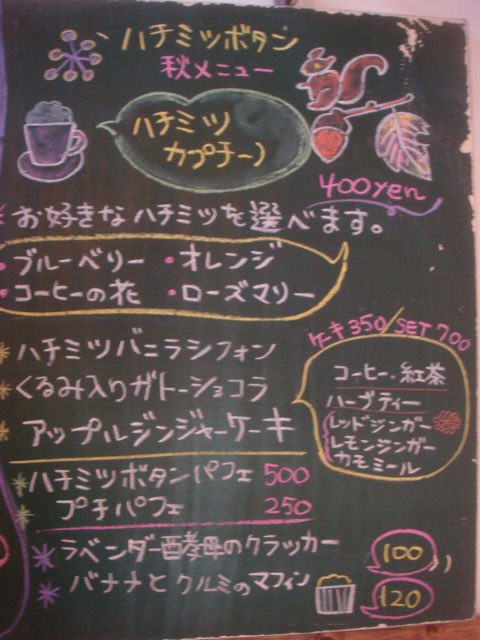 ハチミツボタン
秋メニュー
ハチミツ
カプチーノ
400yen
お好きなハチミツを選べます。
・ブルーベリー ・オレンジ
・コーヒーの花 ・ローズマリー
ケーキ350/SET700
ハチミツバニラシフォン
くるみ入りガトーショコラ
アップルジンジャーケーキ
コーヒー・紅茶
ハーブティー
レッドジンガー
レモンジンガー
カモミール
ハチミツボタンパフェ 500
プチパフェ 250
ラベンダー酵母のクラッカー 100
バナナとクルミのマフィン 120